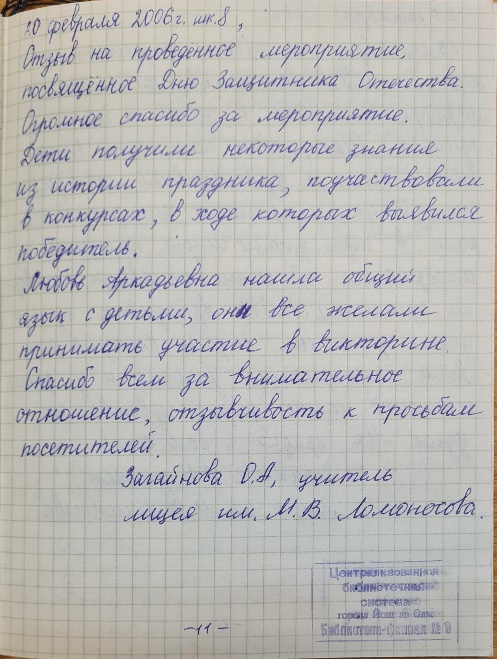 20 февраля 2006г. шк.8,
Отзыв на проведенное мероприятие,
посвящённое Дню Защитника Отечества.
Огромное спасибо за мероприятие.
Дети получили некоторые знания
из истории праздника, поучаствовали
в конкурсах, в ходе которых выявился
победитель.
Любовь Аркадьевна нашла общий
язык с детьми, они все желали
принимать участие в викторине.
Спасибо всем за внимательное
отношение, отзывчивость к просьбам
посетителей.
Загайнова О.А, учитель
лицея им. М.В. Ломоносова.
Централизованная
библиотечная
система
города Йошкар-Олы
Библиотека-филиал №
-11-